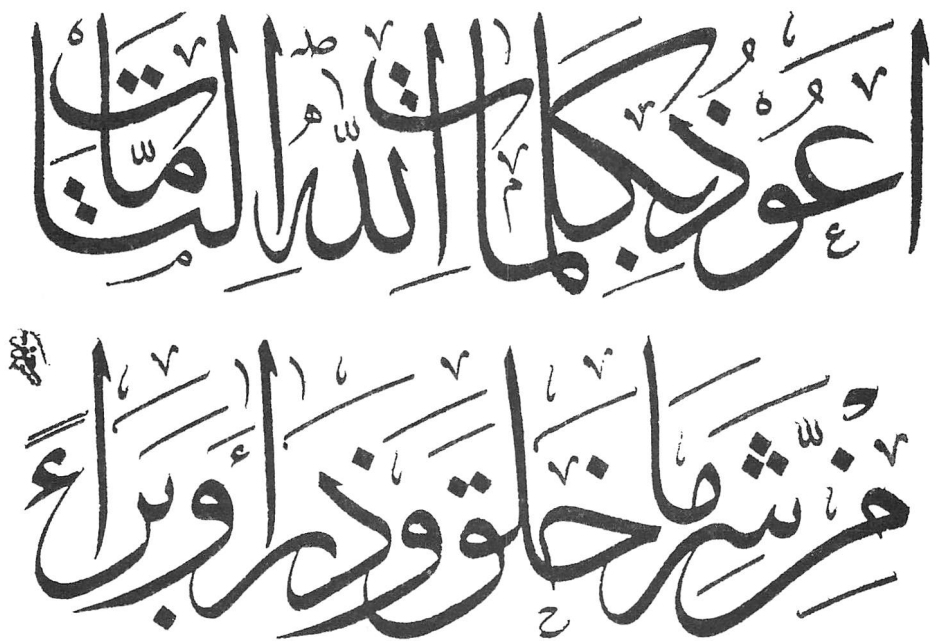 اَعُوْذُ بِكَلِمَاتِ اللّٰهِ التَّامَّاتِ
مِنْ شَرِّ مَا خَلَقَ وَذَرَأَ وَبَرَاءً